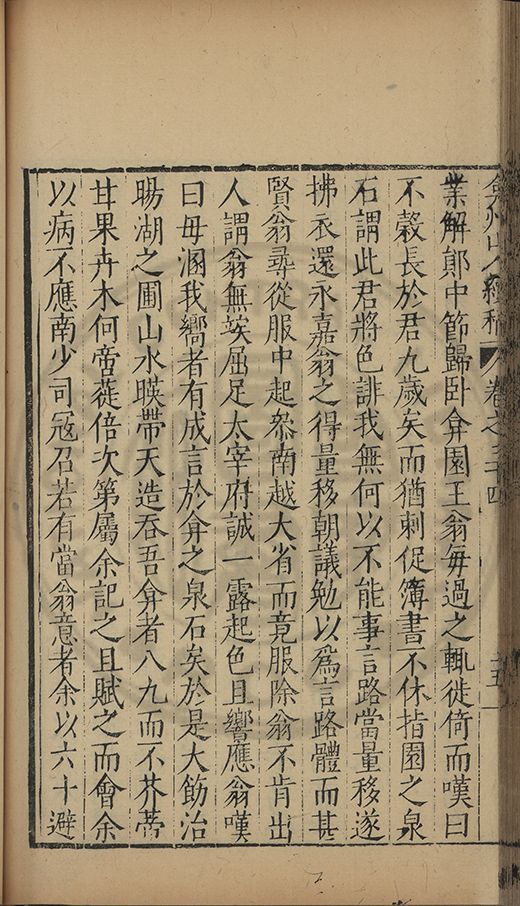 弇州山人續稿 卷之三十四 十五
業解鄖中節歸卧弇園王翁每過之輒徙倚而嘆曰
不穀長於君九歲矣而猶剌促簿書不休指園之泉
石謂此君將色誹我無何以不能事言路當量移遂
拂衣還永嘉翁之得量移朝議勉以爲言路體而甚
賢翁尋從服中起叅南越大省而竟服除翁不肯出
人謂翁無竢屈足太宰府誠一露起色且響應翁嘆
曰毋溷我嚮者有成言於弇之泉石矣於是大飭治
暘湖之圃山水暎帶天造吞吾弇者八九而不芥蔕
甘果卉木何啻蓰倍次第屬余記之且賦之而會余
以病不應南少司寇召若有當翁意者余以六十避